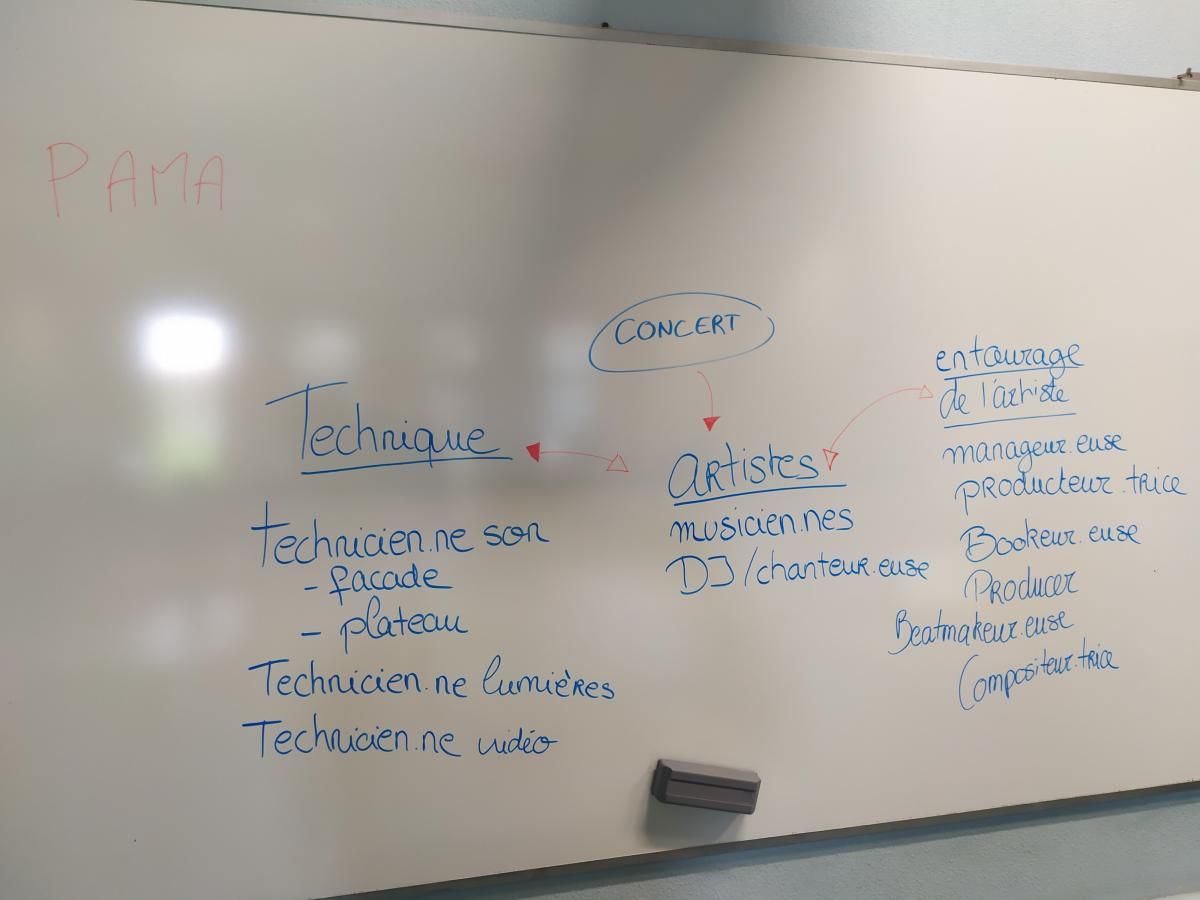 PAMA
CONCERT
Technique
technicien.ne son
- facade
- plateau
Technicien.ne lumières
Technicien.ne vidéo
artistes
musicien.nes
DJ/chanteur.euse
entourage
de l'artiste
manageur.euse
producteur.trice
Bookeur.euse
Producer
Beatmakeur.euse
Compositeur.trice